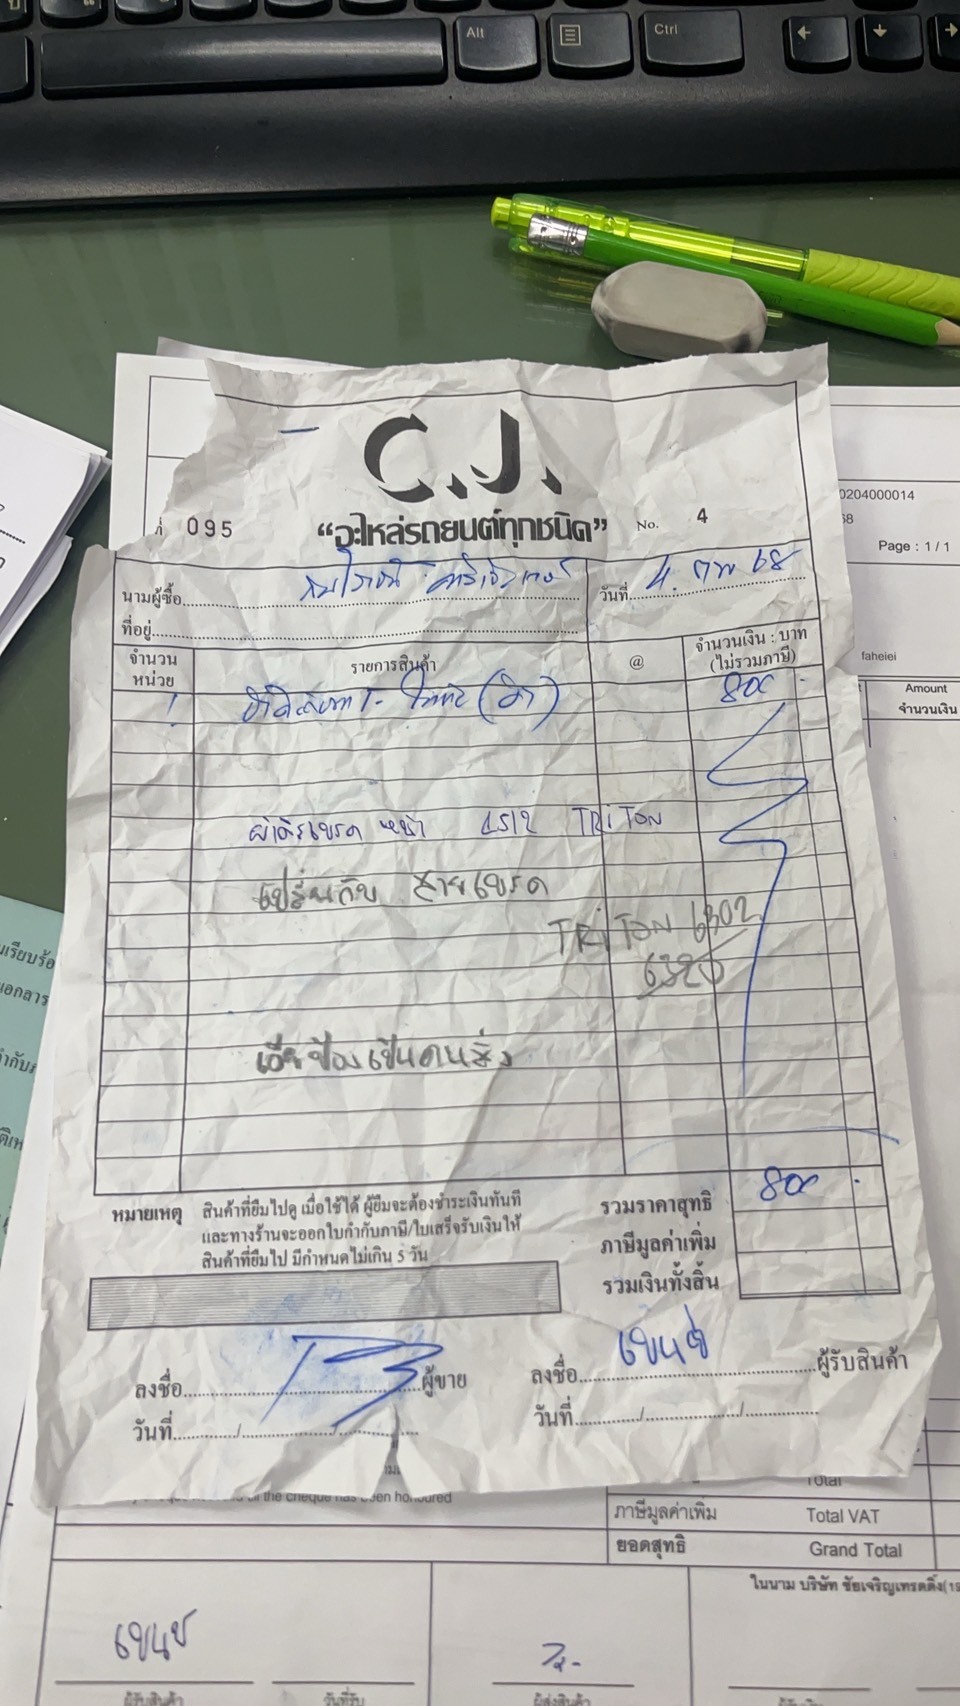 Alt
Ctrl
C.J.
ที่ 095
"อะไหล่รถยนต์ทุกชนิด"
No. 4
นามผู้ซื้อ
วันที่ 4. กพ 68
ที่อยู่
จำนวน
หน่วย
รายการสินค้า
@
จำนวนเงิน : บาท
(ไม่รวมภาษี)
1
800 -
ผ้าดิสเบรค หน้า 1512 TRiTON
เปลี่ยนกับ สายเบรค
TRiTON 6302
6320
เฮียป้องเป็นคนสั่ง
หมายเหตุ สินค้าที่ยืมไปดู เมื่อใช้ได้ ผู้ยืมจะต้องชำระเงินทันที
และทางร้านจะออกใบกำกับภาษี/ใบเสร็จรับเงินให้
สินค้าที่ยืมไป มีกำหนดไม่เกิน 5 วัน
รวมราคาสุทธิ 800 -
ภาษีมูลค่าเพิ่ม
รวมเงินทั้งสิ้น
ลงชื่อ ผู้ขาย
วันที่ / /
ลงชื่อ ผู้รับสินค้า
วันที่ / /
0204000014
68
Page : 1 / 1
faheiei
Amount
จำนวนเงิน
the cheque has been honoured
Total
ภาษีมูลค่าเพิ่ม Total VAT
ยอดสุทธิ Grand Total
ในนาม บริษัท ชัยเจริญเทรดดิ้ง(19
ผู้รับสินค้า
วันที่รับ
ผู้ส่งสินค้า